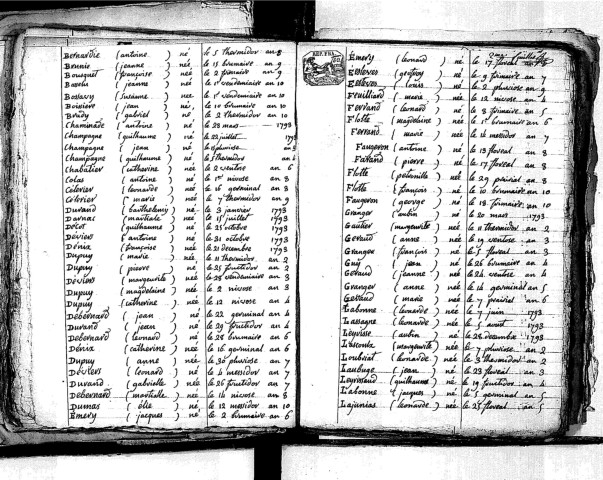 Bernardie (antoine) né le 5 thermidor an 8
Bonnie (jeanne) née le 15 brumaire an 9
Bousquet (françoise) née le 2 frimaire an 9
(jeanne) née le 1er vendemiaire an 10
(Susanne) née le 1er vendemiaire an 10
Boisiere (jean) né le 10 brumaire an 10
Brudy (gabriel) né le 2 thermidor an 10
Chaminade (antoine) né le 28 mars 1793
Champagne (guilhaume) né le 22 juillet 1793
Champagne (jean) né le pluviose an 3
Champagne (guilhaume) né le 5 thermidor an 4
Chabatier (catherine) née le 2 ventose an 6
Colas (antoine) né le 1er nivose an 8
Célerier (leonarde) née le 16 germinal an 8
Célérier (marie) née le 7 thermidor an 9
Durand (barthelemy) né le 3 janvier 1793
Darnat (martiale) née le 15 juillet 1793
Décot (guilhaume) né le 25 octobre 1793
Déviers (antoine) né le 31 octobre 1793
Dénix (françoise) née le 21 decembre 1793
Dupuy (marie) née le 11 thermidor an 2
Dupuy (pierre) né le 25 fructidor an 2
Déviers (marguerite) née le 28 vendemiaire an 3
Dupuy (magdeleine) née le 2 nivose an 3
Dupuy (catherine) née le 12 nivose an 4
Debernard (jean) né le 22 germinal an 4
Durand (jean) né le 29 fructidor an 4
Debernard (leonard) né le 28 brumaire an 6
Dénix (catherine) née le 16 germinal an 6
Dupuy (anne) née le 30 pluviose an 7
Déviers (leonard) né le 4 messidor an 7
Durand (gabrielle) née le 26 fructidor an 7
Debernard (martiale) née le 14 nivose an 8
Dumas (élie) né le 12 messidor an 10
Emery (jacques) né le 2 brumaire an 6
REP. FRA.
Emery (leonard) né le 17 floréal
Estèves (geoffroy) né le 9 frimaire an 7
Estèves (louis) né le 2 pluviose an 9
Feuilliard (marie) née le 12 nivose an 4
Ferrand (leonard) né le 8 frimaire an 5
Flotte (magdeleine) née le 1er brumaire an 6
Ferrand (marie) née le 16 messidor an 7
Faugeron (antoine) né le 13 floréal an 8
(pierre) né le 17 floréal an 8
Flotte (petronille) née le 29 prairial an 8
Flotte (françois) né le 10 brumaire an 10
Faugeron (george) né le 18 frimaire an 10
Granger (aubin) né le 20 mars 1793
Gautier (marguerite) née le 11 thermidor an 2
Geraud (anne) née le 19 ventose an 3
Granger (françois) né le 5 floréal an 3
Guy (jean) né le 26 brumaire an 4
Geraud (jeanne) née le 24 ventose an 4
Granger (anne) née le 14 germinal an 5
Geraud (marie) née le 7 prairial an 6
Labonne (leonarde) née le 7 juin 1793
Lassagne (leonarde) née le 5 août 1793
Leyrisse (aubin) né le 28 decembre 1793
Lascoux (marguerite) née le 7 pluviose an 2
Loubriat (leonarde) née le 3 thermidor an 2
Laubuge (jean) né le 23 floréal an 3
(guilhaume) né le 19 fructidor an 4
L'abonne (jacques) né le 5 germinal an 5
Lajunias (leonarde) née le 25 floréal an 5